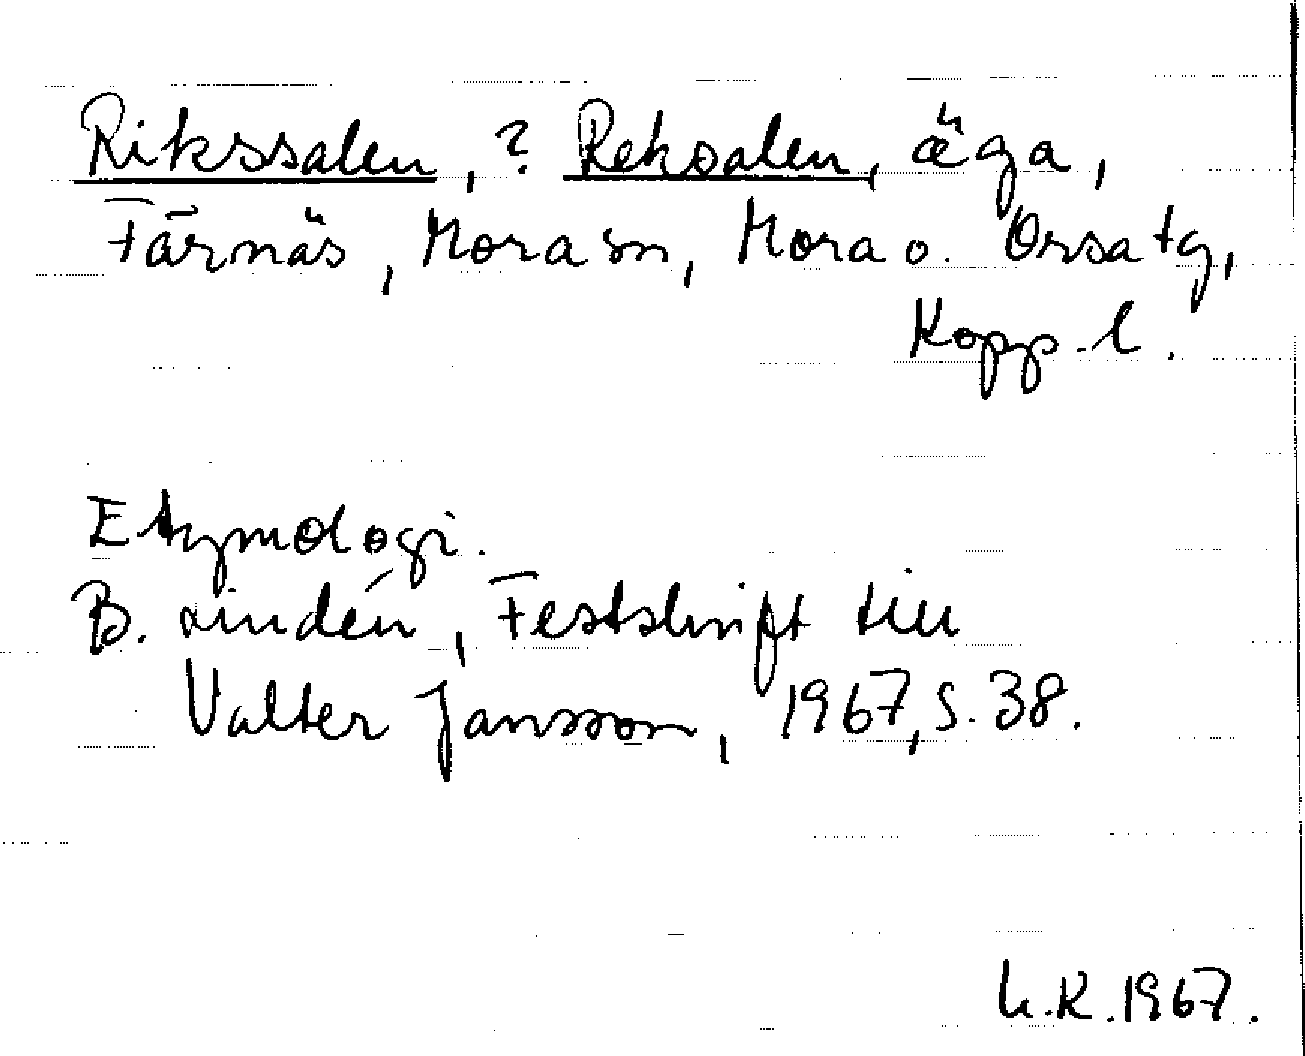 Rikssalen, ? Reksalen, äga,
Färnäs, Mora sn, Mora o. Orsa tg,
Kopp. l.
Etymologi.
B. Lindén, Festskrift till
Valter Jansson, 1967, s. 38.
L.K. 1967.